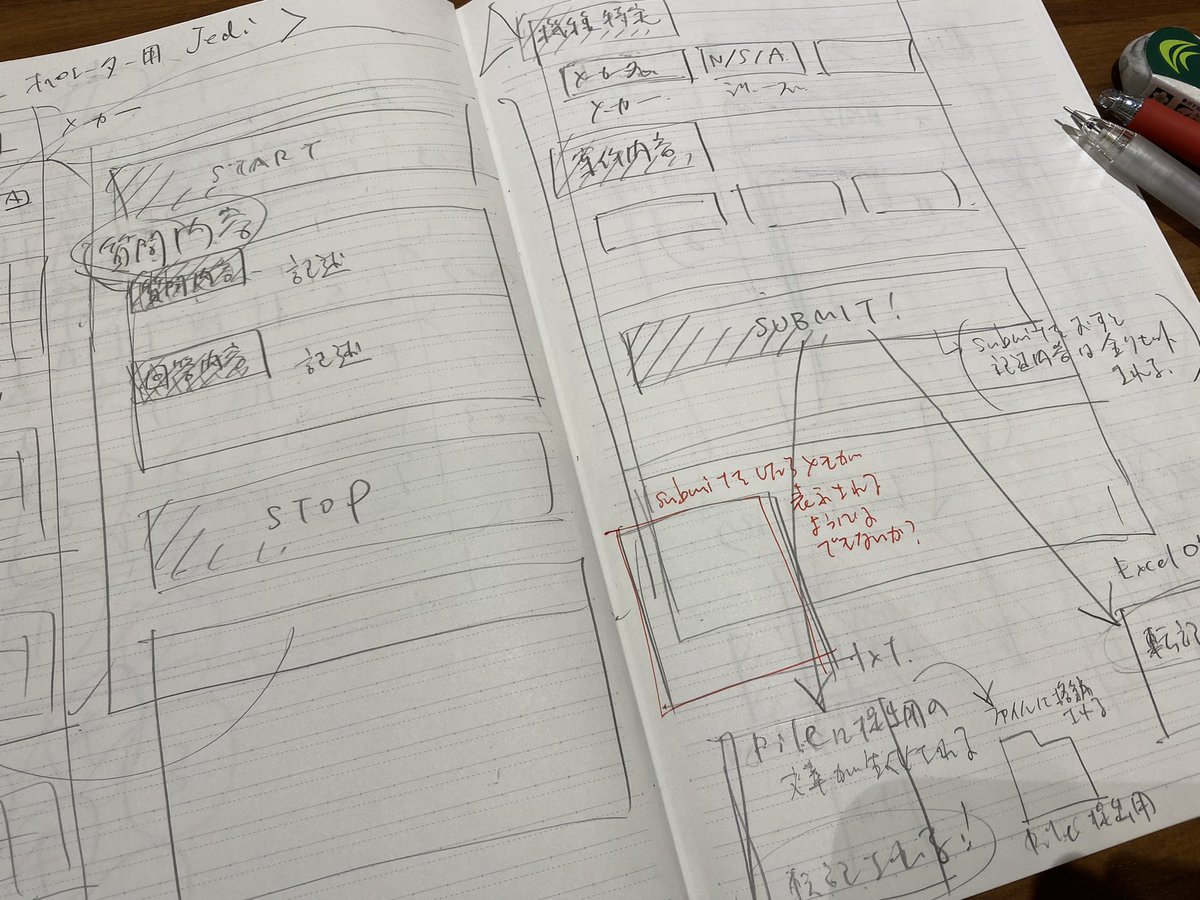 オペレーター用 Jedi
メーカー
A
START
質問内容
質問内容
記述
回答内容
記述
STOP
機種特定
メーカー
N/S/A
メーカー
シリーズ
案件内容
SUBMIT!
submitを おすと
記述内容は 全リセット
される.
submitを
表示される
ように
できないか?
Excel
転記
txt.
提出用の
文章が生成される
ファイルに格納
される
転記される!
提出用